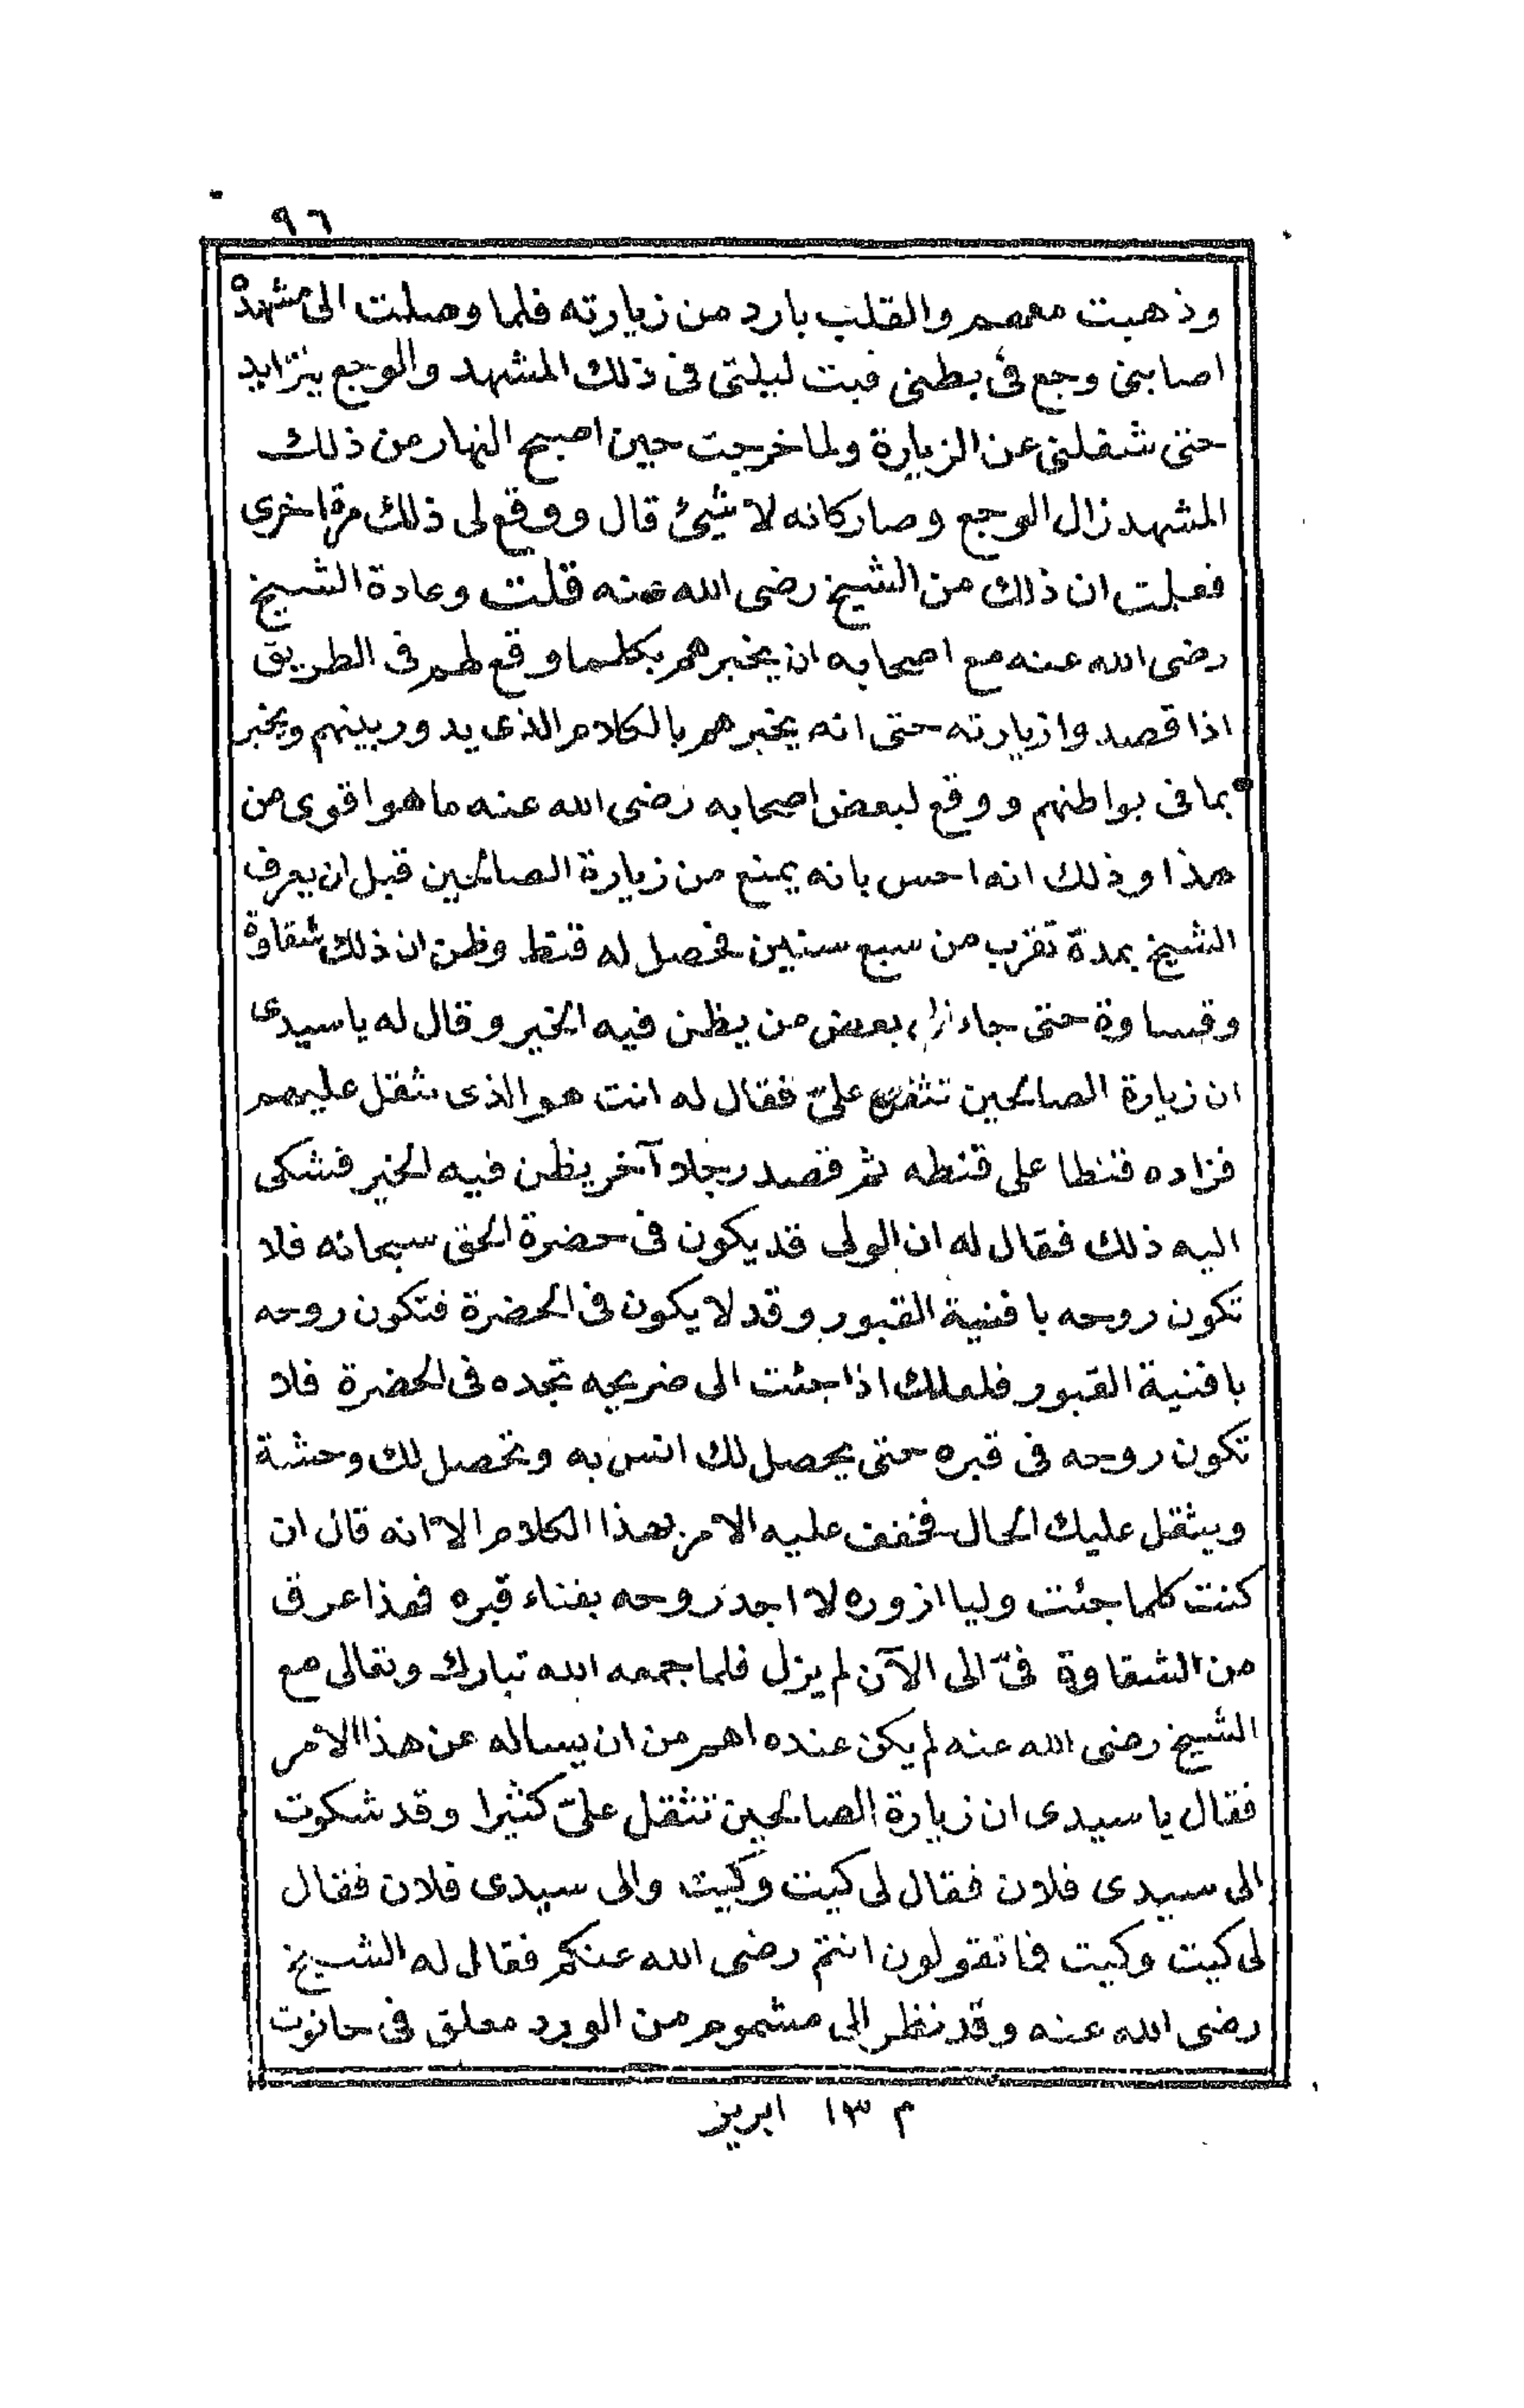 ٩٦
وذهبت معهم والقلب بارد من زيارته فلما وصلت الى مشهده
اصابنى وجع فى بطنى فبت ليلتى فى ذلك المشهد والوجع يتزايد
حتى شغلنى عن الزيارة ولما خرجت حين اصبح النهار من ذلك
المشهد زال الوجع وصار كانه لا شيئ قال ووقع لى ذلك مرة اخرى
فعلمت ان ذلك من الشيخ رضى الله عنه قلت وعادة الشيخ
رضى الله عنه مع اصحابه ان يخبرهم بكلما وقع لهم فى الطريق
اذا قصدوا زيارته حتى انه يخبرهم بالكلام الذى يدور بينهم ويخبر
بما فى بواطنهم ووقع لبعض اصحابه رضى الله عنه ما هو اقوى من
هذا وذلك انه احس بانه يمنع من زيارة الصالحين قبل ان يعرف
الشيخ بمدة تقرب من سبع سنين فحصل له قنط وظن ان ذلك شقاوة
وقساوة حتى جاء بعض من يظن فيه الخير وقال له يا سيدى
ان زيارة الصالحين تثقل علىّ فقال له انت هو الذى تثقل عليهم
فزاده قنطا على قنطه ثم قصد رجلا آخر يظن فيه الخير فشكى
اليه ذلك فقال له ان الولى قد يكون فى حضرة الحق سبحانه فلا
تكون روحه بافنية القبور وقد لا يكون فى الحضرة فتكون روحه
بافنية القبور فلعلك اذا جئت الى ضريحه تجده فى الحضرة فلا
تكون روحه فى قبره حتى يحصل لك انس به وتحصل لك وحشة
ويثقل عليك الحال فخفف عليه الامر بهذا الكلام الا انه قال ان
كنت كلما جئت وليا ازوره لا اجد روحه بفناء قبره فهذا عرق
من الشقاوة فىّ الى الآن لم يزل فلما جمعه الله تبارك وتعالى مع
الشيخ رضى الله عنه لم يكن عنده اهم من ان يساله عن هذا الامر
فقال يا سيدى ان زيارة الصالحين تثقل علىّ كثيرا وقد شكوت
الى سيدى فلان فقال لى كيت وكيت والى سيدى فلان فقال
لى كيت وكيت فما تقولون انتم رضى الله عنكم فقال له الشيخ
رضى الله عنه وقد نظر الى مشموم من الورد معلق فى حانوت
م ١٣ ابريز